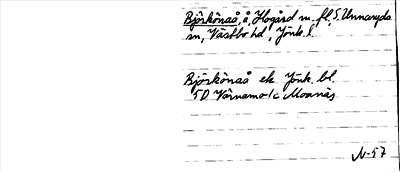 Björkönaå, å, Hogård m. fl. S. Unnaryds
sn, Västbo hd, Jönk. l.
Björkönaå ek. Jönk. bl.
5D Värnamo 1c Moanäs
N-57